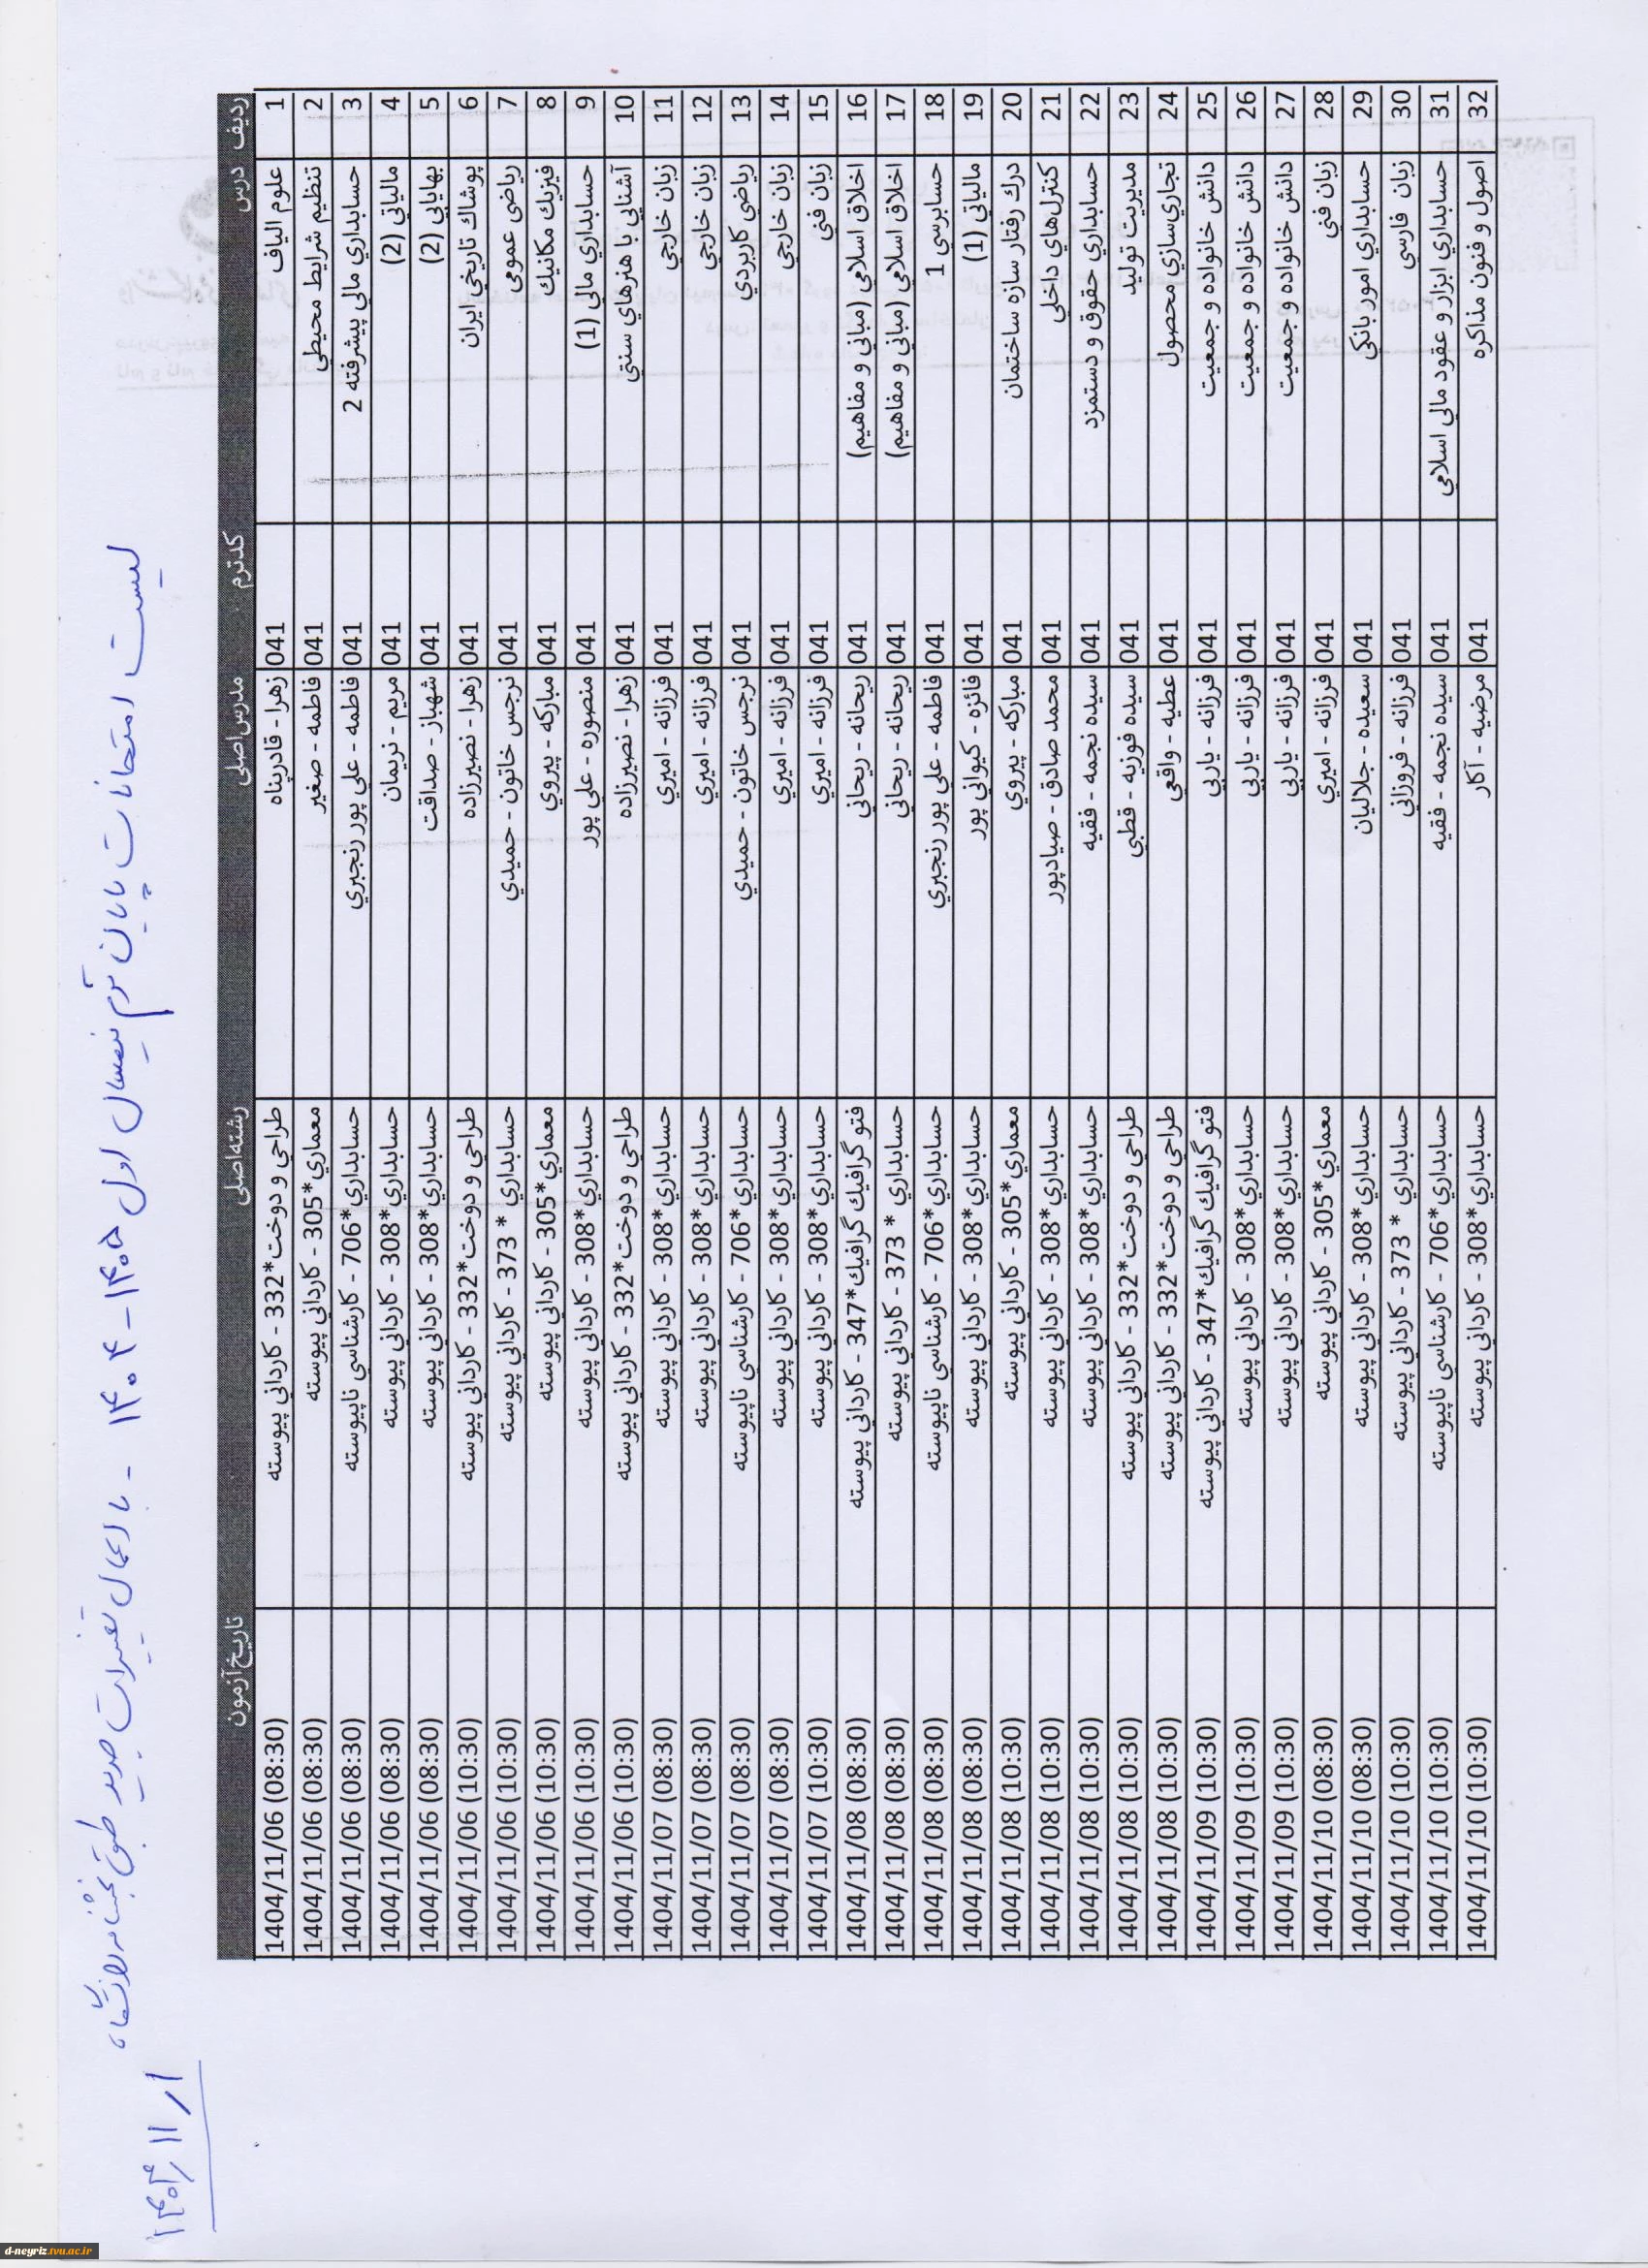 لیست امتحانات پایان ترم نیمسال اول ۱۴۰۵-۱۴۰۴ - با اعمال تغییرات جدید طبق بخشنامه دانشگاه
۱۴۰۴/۱۱/۱
ردیف درس کد ترم مدرس اصلی رشته اصلی تاریخ آزمون
1 علوم الیاف 041 زهرا - قادرپناه طراحي و دوخت*332 - كارداني پيوسته 1404/11/06 (08:30)
2 تنظیم شرایط محیطی 041 فاطمه - صغیر معماري*305 - كارداني پيوسته 1404/11/06 (08:30)
3 حسابداري مالي پيشرفته 2 041 فاطمه - علي پور رنجبري حسابداري*706 - كارشناسي ناپيوسته 1404/11/06 (08:30)
4 مالياتي (2) 041 مريم - نريمان حسابداري*308 - كارداني پيوسته 1404/11/06 (08:30)
5 بهايابي (2) 041 شهباز - صداقت حسابداري*308 - كارداني پيوسته 1404/11/06 (08:30)
6 پوشاك تاريخي ايران 041 زهرا - نصيرزاده طراحي و دوخت*332 - كارداني پيوسته 1404/11/06 (10:30)
7 رياضي عمومي 041 نرجس خاتون - حميدي حسابداري * 373 - كارداني پيوسته 1404/11/06 (10:30)
8 فيزيك مكانيك 041 مباركه - پيروي معماري*305 - كارداني پيوسته 1404/11/06 (10:30)
9 حسابداري مالي (1) 041 منصوره - علي پور حسابداري*308 - كارداني پيوسته 1404/11/06 (10:30)
10 آشنايي با هنرهاي سنتي 041 زهرا - نصيرزاده طراحي و دوخت*332 - كارداني پيوسته 1404/11/06 (10:30)
11 زبان خارجي 041 فرزانه - اميري حسابداري*308 - كارداني پيوسته 1404/11/07 (08:30)
12 زبان خارجي 041 فرزانه - اميري حسابداري*308 - كارداني پيوسته 1404/11/07 (08:30)
13 رياضي كاربردي 041 نرجس خاتون - حميدي حسابداري*706 - كارشناسي ناپيوسته 1404/11/07 (08:30)
14 زبان خارجي 041 فرزانه - اميري حسابداري*308 - كارداني پيوسته 1404/11/07 (08:30)
15 زبان فني 041 فرزانه - اميري حسابداري*308 - كارداني پيوسته 1404/11/07 (10:30)
16 اخلاق اسلامي (مباني و مفاهيم) 041 ريحانه - ريحاني فتو گرافيك گرافيك*347 - كارداني پيوسته 1404/11/08 (08:30)
17 اخلاق اسلامي (مباني و مفاهيم) 041 ريحانه - ريحاني حسابداري * 373 - كارداني پيوسته 1404/11/08 (08:30)
18 حسابرسي 1 041 فاطمه - علي پور رنجبري حسابداري*706 - كارشناسي ناپيوسته 1404/11/08 (08:30)
19 مالياتي (1) 041 فائزه - كيواني پور حسابداري*308 - كارداني پيوسته 1404/11/08 (08:30)
20 درك رفتار سازه ساختمان 041 مباركه - پيروي معماري*305 - كارداني پيوسته 1404/11/08 (10:30)
21 كنترل‌هاي داخلي 041 محمد صادق - صيادپور حسابداري*308 - كارداني پيوسته 1404/11/08 (10:30)
22 حسابداري حقوق و دستمزد 041 سيده نجمه - فقيه حسابداري*308 - كارداني پيوسته 1404/11/08 (10:30)
23 مديريت توليد 041 سيده فوزيه - قطبي طراحي و دوخت*332 - كارداني پيوسته 1404/11/08 (10:30)
24 تجاري‌سازي محصول 041 عطيه - واقعي طراحي و دوخت*332 - كارداني پيوسته 1404/11/08 (10:30)
25 دانش خانواده و جمعيت 041 فرزانه - ياربي فتو گرافيك گرافيك*347 - كارداني پيوسته 1404/11/09 (10:30)
26 دانش خانواده و جمعيت 041 فرزانه - ياربي حسابداري*308 - كارداني پيوسته 1404/11/09 (10:30)
27 دانش خانواده و جمعيت 041 فرزانه - ياربي حسابداري*308 - كارداني پيوسته 1404/11/09 (10:30)
28 زبان فني 041 فرزانه - اميري معماري*305 - كارداني پيوسته 1404/11/10 (08:30)
29 حسابداري امور بانكي 041 سعيده - جلاليان حسابداري*308 - كارداني پيوسته 1404/11/10 (08:30)
30 زبان فارسي 041 فرزانه - فروزاني حسابداري * 373 - كارداني پيوسته 1404/11/10 (10:30)
31 حسابداري ابزار و عقود مالي اسلامي 041 سيده نجمه - فقيه حسابداري*706 - كارشناسي ناپيوسته 1404/11/10 (10:30)
32 اصول و فنون مذاكره 041 مرضيه - آكار حسابداري*308 - كارداني پيوسته 1404/11/10 (10:30)
d-neyriz.tvu.ac.ir